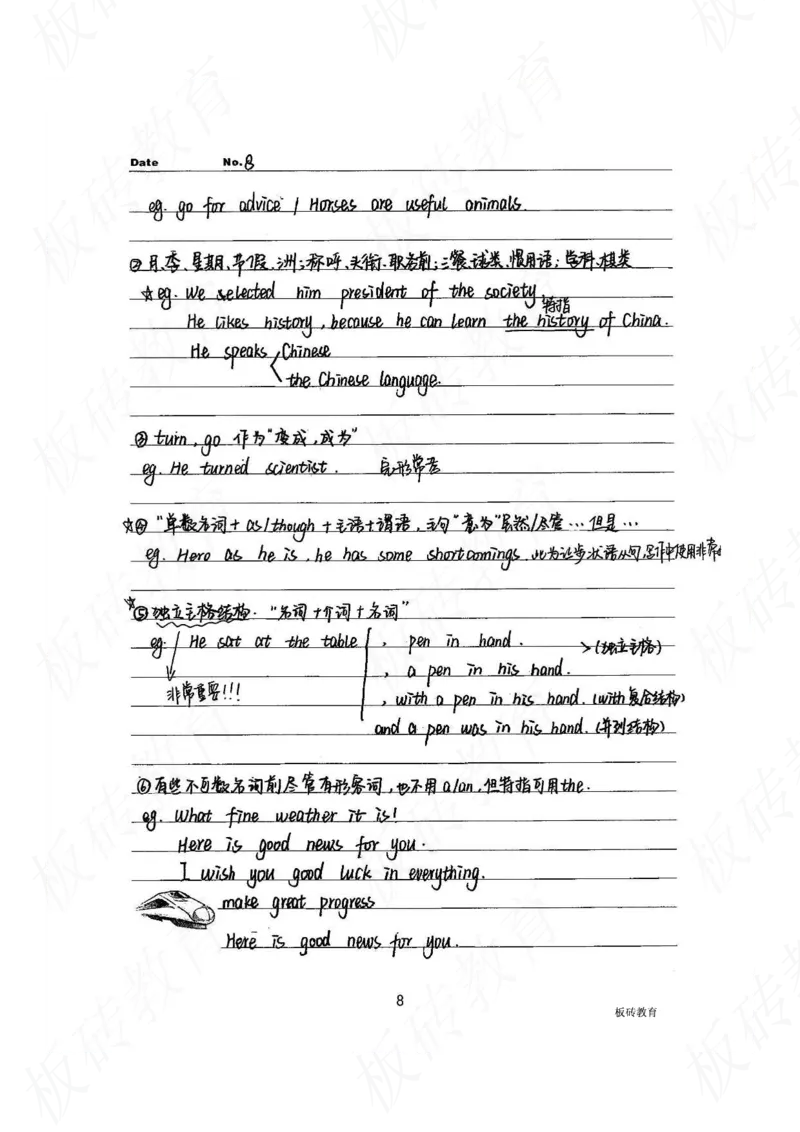 Date No. 8
eg. go for advice / Horses are useful animals.
②月、季、星期、节假、洲;称呼、头衔、职务前;三餐、球类、惯用语;学科、棋类
☆eg. We selected him president of the society.
特指
He likes history, because he can learn the history of China.
He speaks Chinese
the Chinese language.
③turn, go 作为"变成,成为"
eg. He turned scientist. 完形常考
☆④"单数名词+as/though+主语+谓语,主句"意为"虽然/尽管…但是…
eg. Hero as he is, he has some shortcomings. 此为让步状语从句,写作中使用非常
☆⑤独立主格结构. "名词+介词+名词"
eg. He sat at the table , pen in hand. >(独立主格)
, a pen in his hand.
非常重要!!! , with a pen in his hand. (with复合结构)
and a pen was in his hand. (并列结构)
⑥有些不可数名词前尽管有形容词,也不用a/an,但特指可用the.
eg. What fine weather it is!
Here is good news for you.
I wish you good luck in everything.
make great progress
Here is good news for you.
8
板砖教育